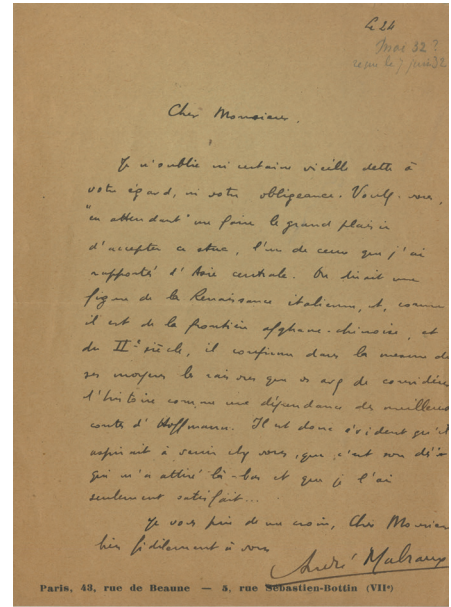 Le 24
mai 32 ?
reçu le 7 juin 32
Cher Monsieur,
Je n'oublie ni certaine vieille dette à
votre égard, ni votre obligeance. Voulez-vous,
"en attendant" me faire le grand plaisir
d'accepter ce stuc, l'un de ceux que j'ai
rapportés d'Asie centrale. On dirait une
figure de la Renaissance italienne, et, comme
il est de la frontière afghano-chinoise, et
du IIe siècle, il confirme dans la mesure de
ses moyens les raisons que vous avez de considérer
l'histoire comme une dépendance des meilleurs
contes d'Hoffmann. Il est donc évident qu'il
aspirait à venir chez vous, que c'est son désir
qui m'a attiré là-bas et que je l'ai
seulement satisfait...
Je vous prie de me croire, Cher Monsieur
bien fidèlement à vous
André Malraux
Paris, 43, rue de Beaune — 5, rue Sébastien-Bottin (VIIe)